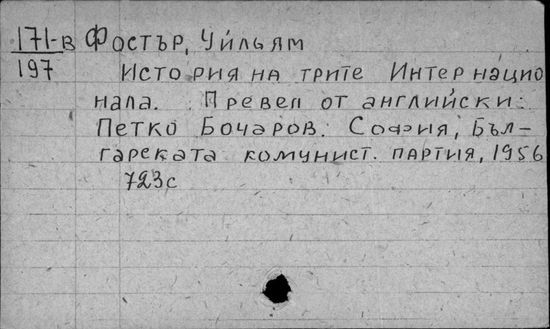 171-В Фостър, Уйльям
197 История на трите Интернацио
нала. Превел от английски:
Петко Бочаров. София, Бъл-
гареката комунист. партия, 1956
723с